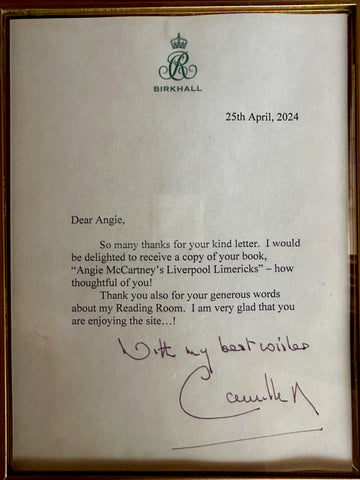 BIRKHALL
25th April, 2024
Dear Angie,
So many thanks for your kind letter. I would
be delighted to receive a copy of your book,
“Angie McCartney's Liverpool Limericks” – how
thoughtful of you!
Thank you also for your generous words
about my Reading Room. I am very glad that you
are enjoying the site…!
With my best wishes
Camilla R